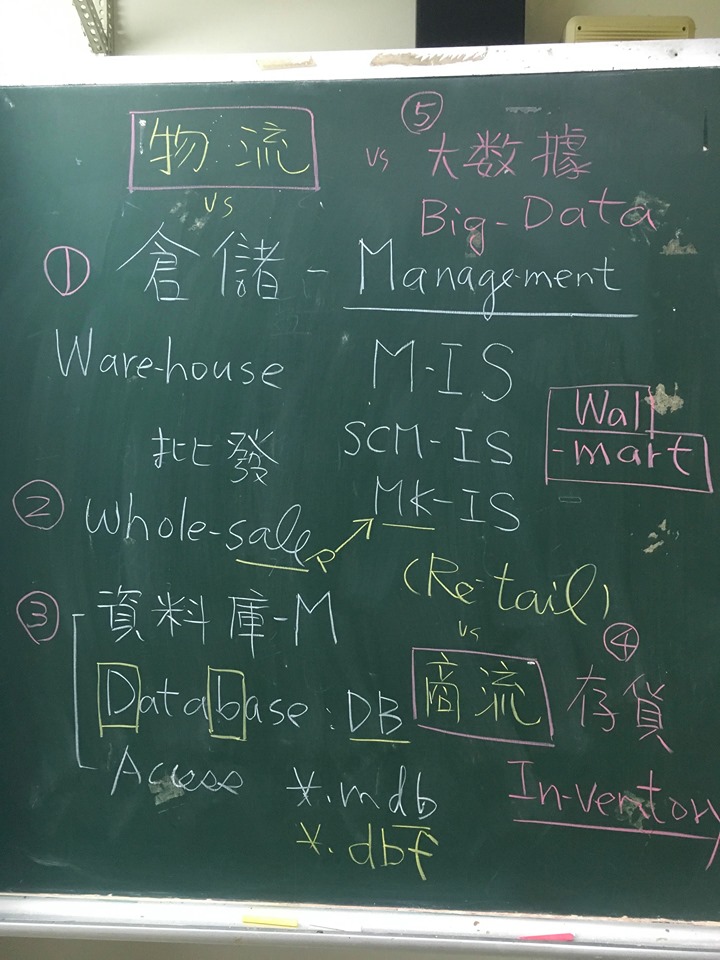 物流 vs ⑤ 大數據
vs Big-Data
① 倉儲-Management
Ware-house M-IS
Wal
-mart
批發 SCM-IS
② Whole-sale MK-IS
(Re-tail)
③ 資料庫-M
vs
Database:DB 商流 ④ 存貨
Access *.mdb In-ventory
*.dbf